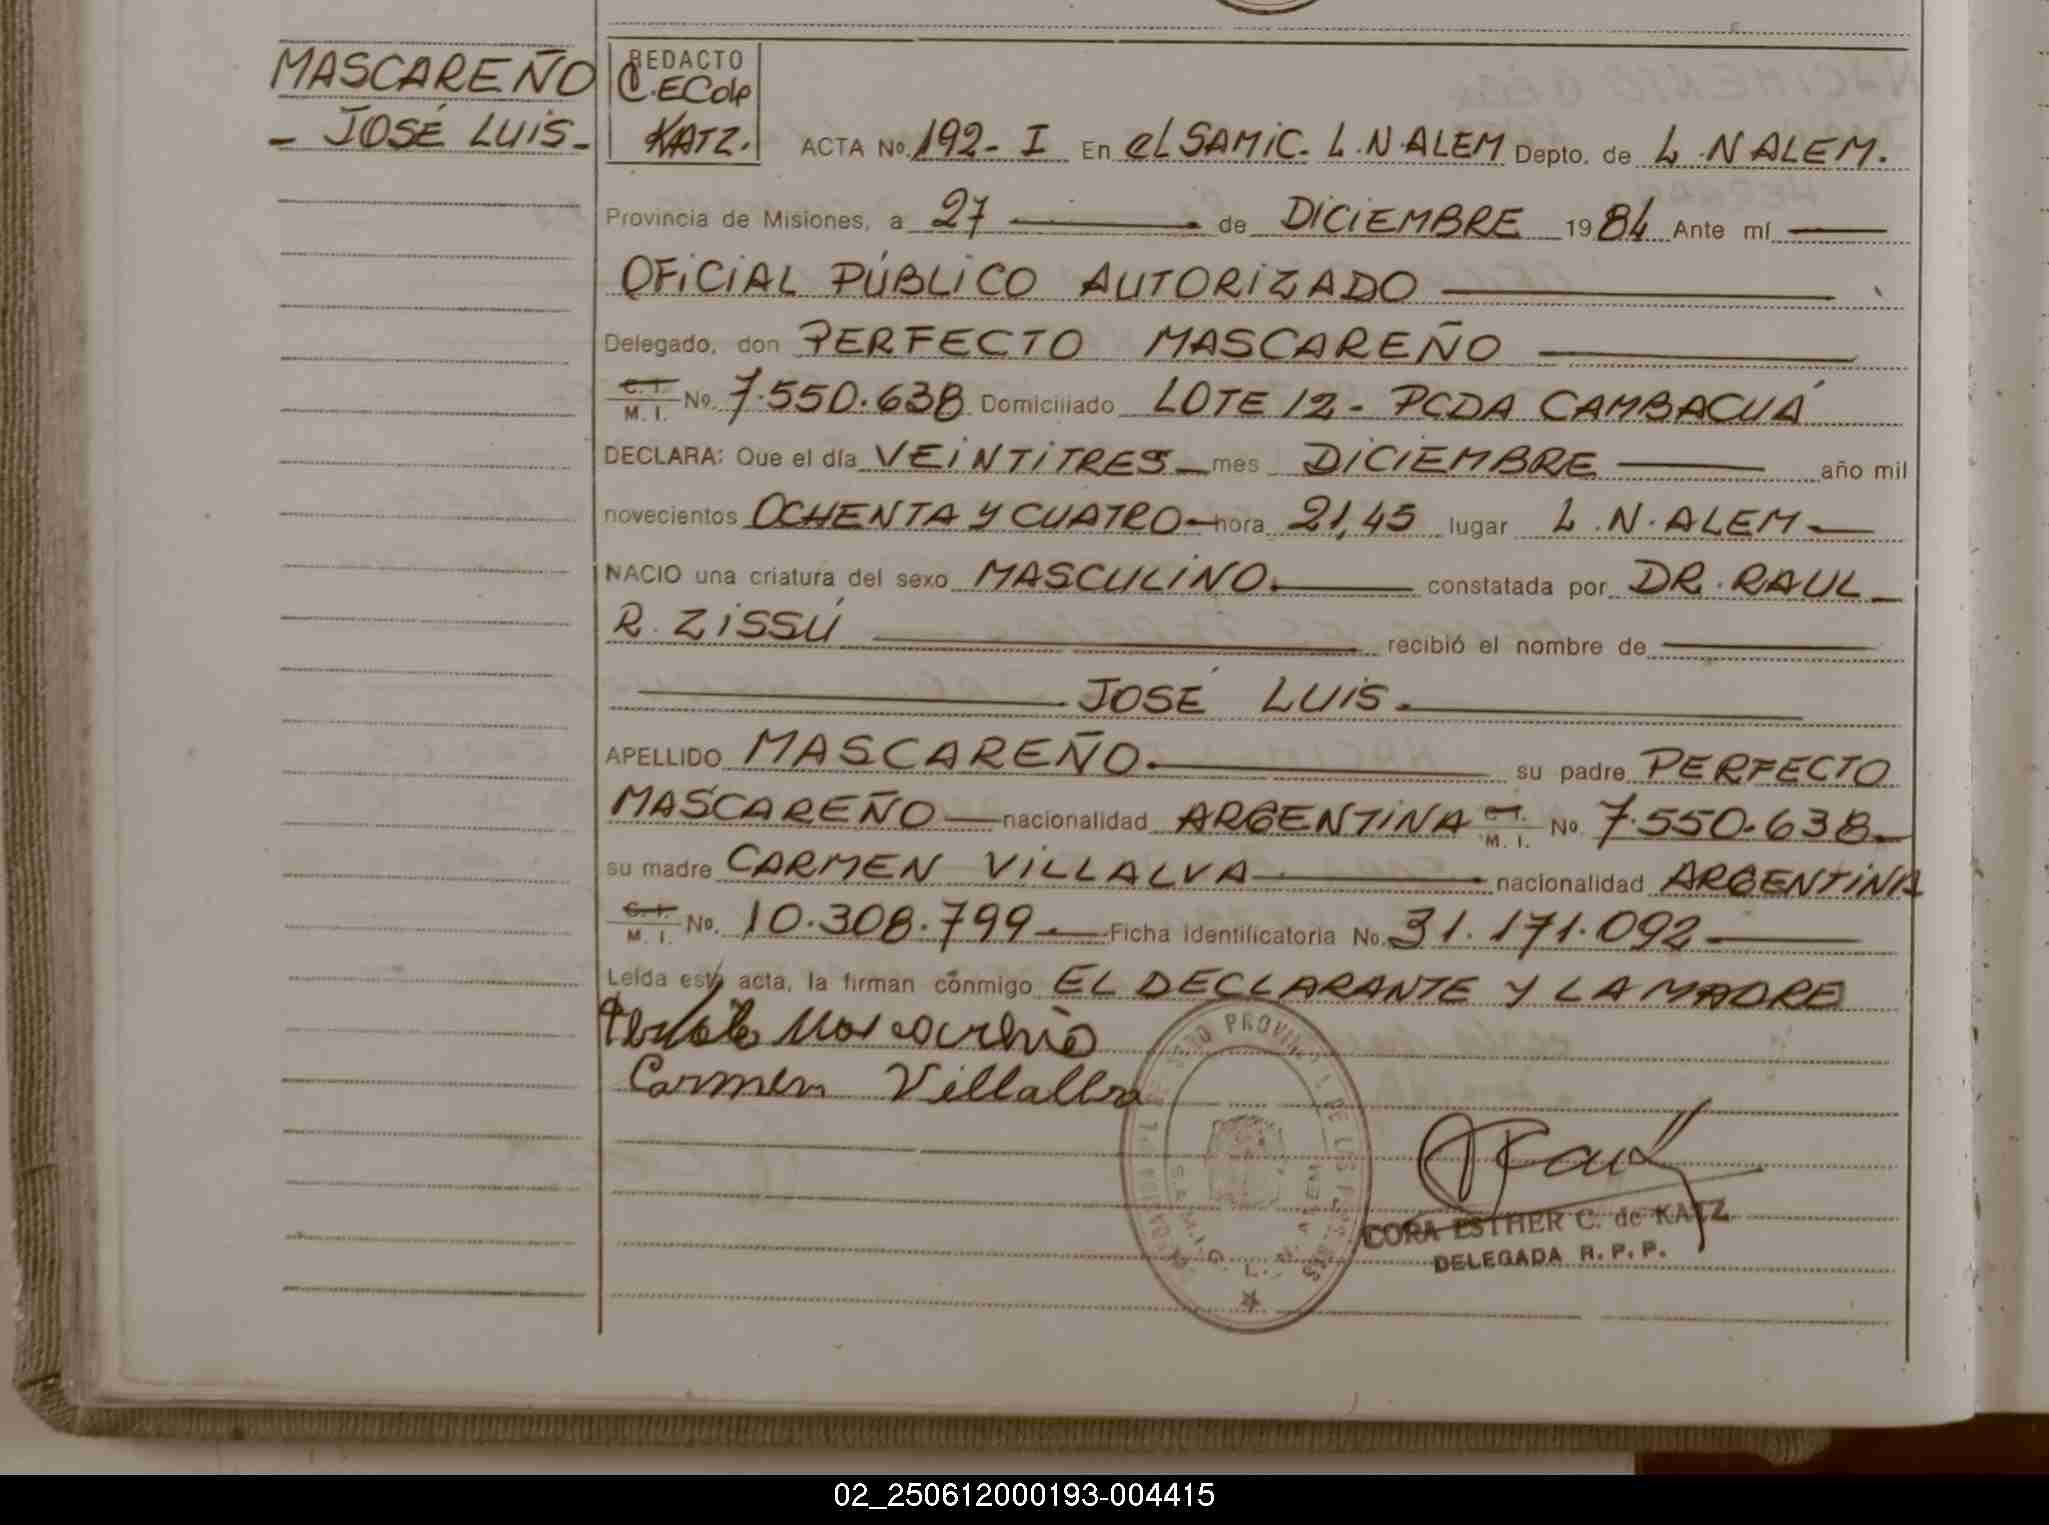 MASCAREÑO
- JOSÉ LUIS -
REDACTO
C. E C de
KATZ.
ACTA No. 192 - I En el SAMIC. L.N.ALEM Depto. de L.N ALEM.
Provincia de Misiones, a 27 de DICIEMBRE 1984 Ante mí
OFICIAL PÚBLICO AUTORIZADO
Delegado, don PERFECTO MASCAREÑO
C. I.
M. I. No. 7.550.638 Domiciliado LOTE 12 - PCDA CAMBACUÁ
DECLARA: Que el día VEINTITRES mes DICIEMBRE año mil
novecientos OCHENTA Y CUATRO hora 21,45 lugar L.N.ALEM
NACIO una criatura del sexo MASCULINO. constatada por DR. RAUL
R. ZISSÚ recibió el nombre de
JOSÉ LUIS.
APELLIDO MASCAREÑO. su padre PERFECTO
MASCAREÑO nacionalidad ARGENTINA C. I. M. I. No. 7.550.638.
su madre CARMEN VILLALVA nacionalidad ARGENTINA
C. I.
M. I. No. 10.308.799 Ficha identificatoria No. 31.171.092
Leída esta acta, la firman conmigo EL DECLARANTE Y LA MADRE
Mascareño
Carmen Villalba
CORA ESTHER C. de KATZ
DELEGADA R. P. P.
02_250612000193-004415